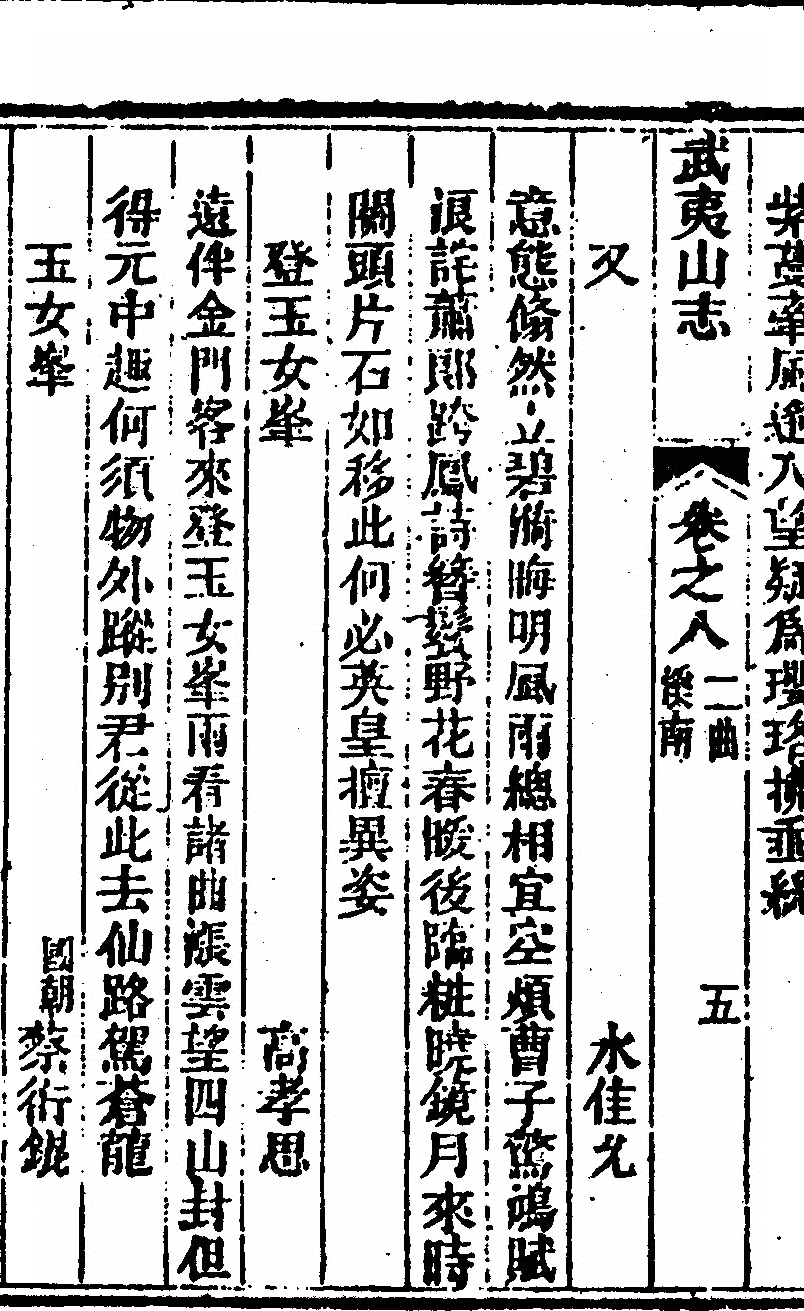 紫蔓牽風逾入望疑爲瓔珞拂垂緌
武夷山志 卷之八 二曲 梁南 五
又 水佳允
意態翛然立碧漪晦明風雨總相宜空煩曹子驚鴻賦
浪詫蕭郎跨鳳詩簪鬟野花春暖後臨粧曉鏡月來時
關頭片石如移此何必英皇擅異姿
登玉女峯 高孝思
遠伴金門客來登玉女峯雨看諸曲漲雲望四山封但
得元中趣何須物外蹤别君從此去仙路駕蒼龍
玉女峯 國朝 蔡衍鎤